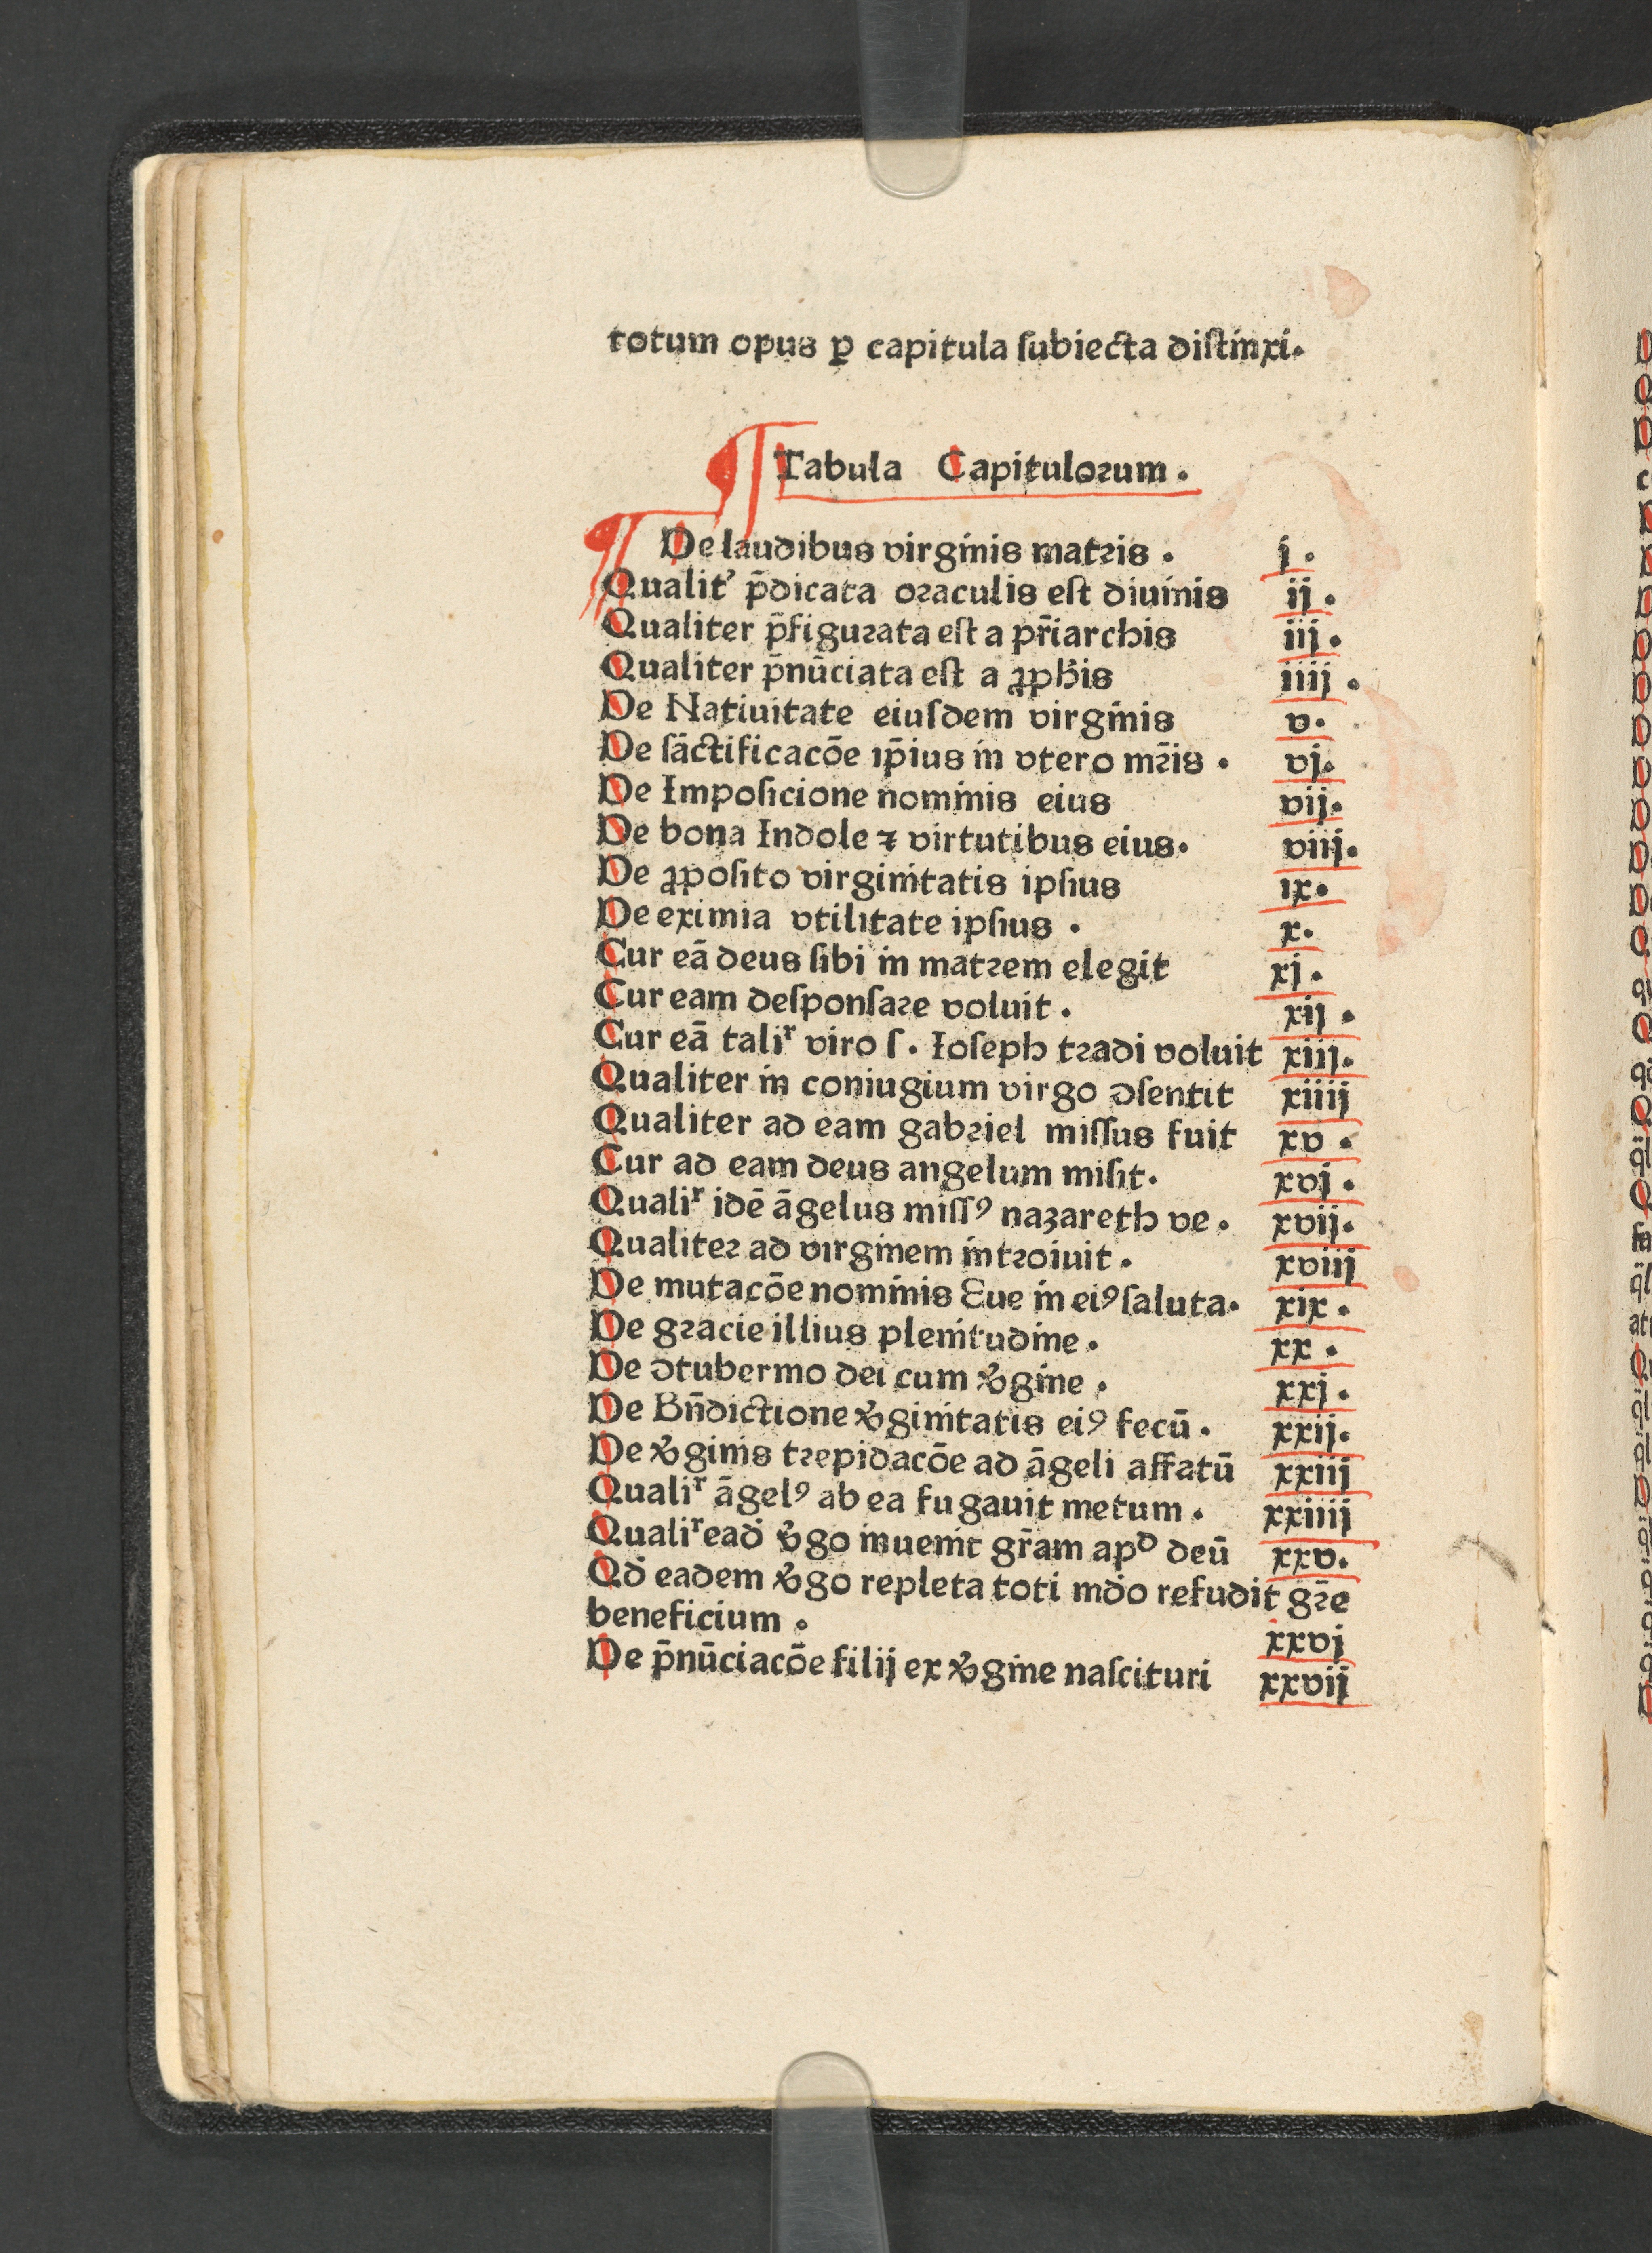 totum opus ꝑ capitula ſubiecta diſtinxi.
Tabula Capituloꝛum.
De laudibus virginis matꝛis. i.
Qualit᾽ p̄dicata oꝛaculis eſt diuinis ij.
Qualiter p̄figuꝛata eſt a pr̄iarchis iij.
Qualiter p̄nūciata eſt a ꝓph̄is iiij.
De Natiuitate eiuſdem virginis v.
De ſāctificacōe ip̄ius in vtero mꝛ̄is. vj.
De Impoſicione nominis eius vij.
De bona Indole ⁊ virtutibus eius. viij.
De ꝓpoſito virginitatis ipſius ix.
De eximia vtilitate ipſius. x.
Cur eā deus ſibi in matꝛem elegit xj.
Cur eam deſponſaꝛe voluit. xij.
Cur eā taliͬ viro ſ. Ioſeph tꝛadi voluit xiij.
Qualiter in coniugium virgo ↄſentit xiiij
Qualiter ad eam gabꝛiel miſſus fuit xv.
Cur ad eam deus angelum miſit. xvj.
Qualiͬ idē āgelus miſſꝰ nazareth ve. xvij.
Qualiteꝛ ad virginem intꝛoiuit. xviij
De mutacōe nominis Eue in eiꝰ ſaluta. xix.
De gꝛacie illius plenitudine. xx.
De ↄtubernio dei cum v̾gine. xxj.
De Bn̄dictione v̾ginitatis eiꝰ fecū. xxij.
De v̾ginis tꝛepidacōe ad āgeli affatū xxiij
Qualiͬ āgelꝰ ab ea fugauit metum. xxiiij
Qualiͬ ead̾ v̾go inuenit gr̄am apᵈ deū xxv.
Qd̾ eadem v̾go repleta toti md̾o refudit gꝛ̄e
beneficium. xxvj
De p̄nūciacōe filij ex v̾gine naſcituri xxvij